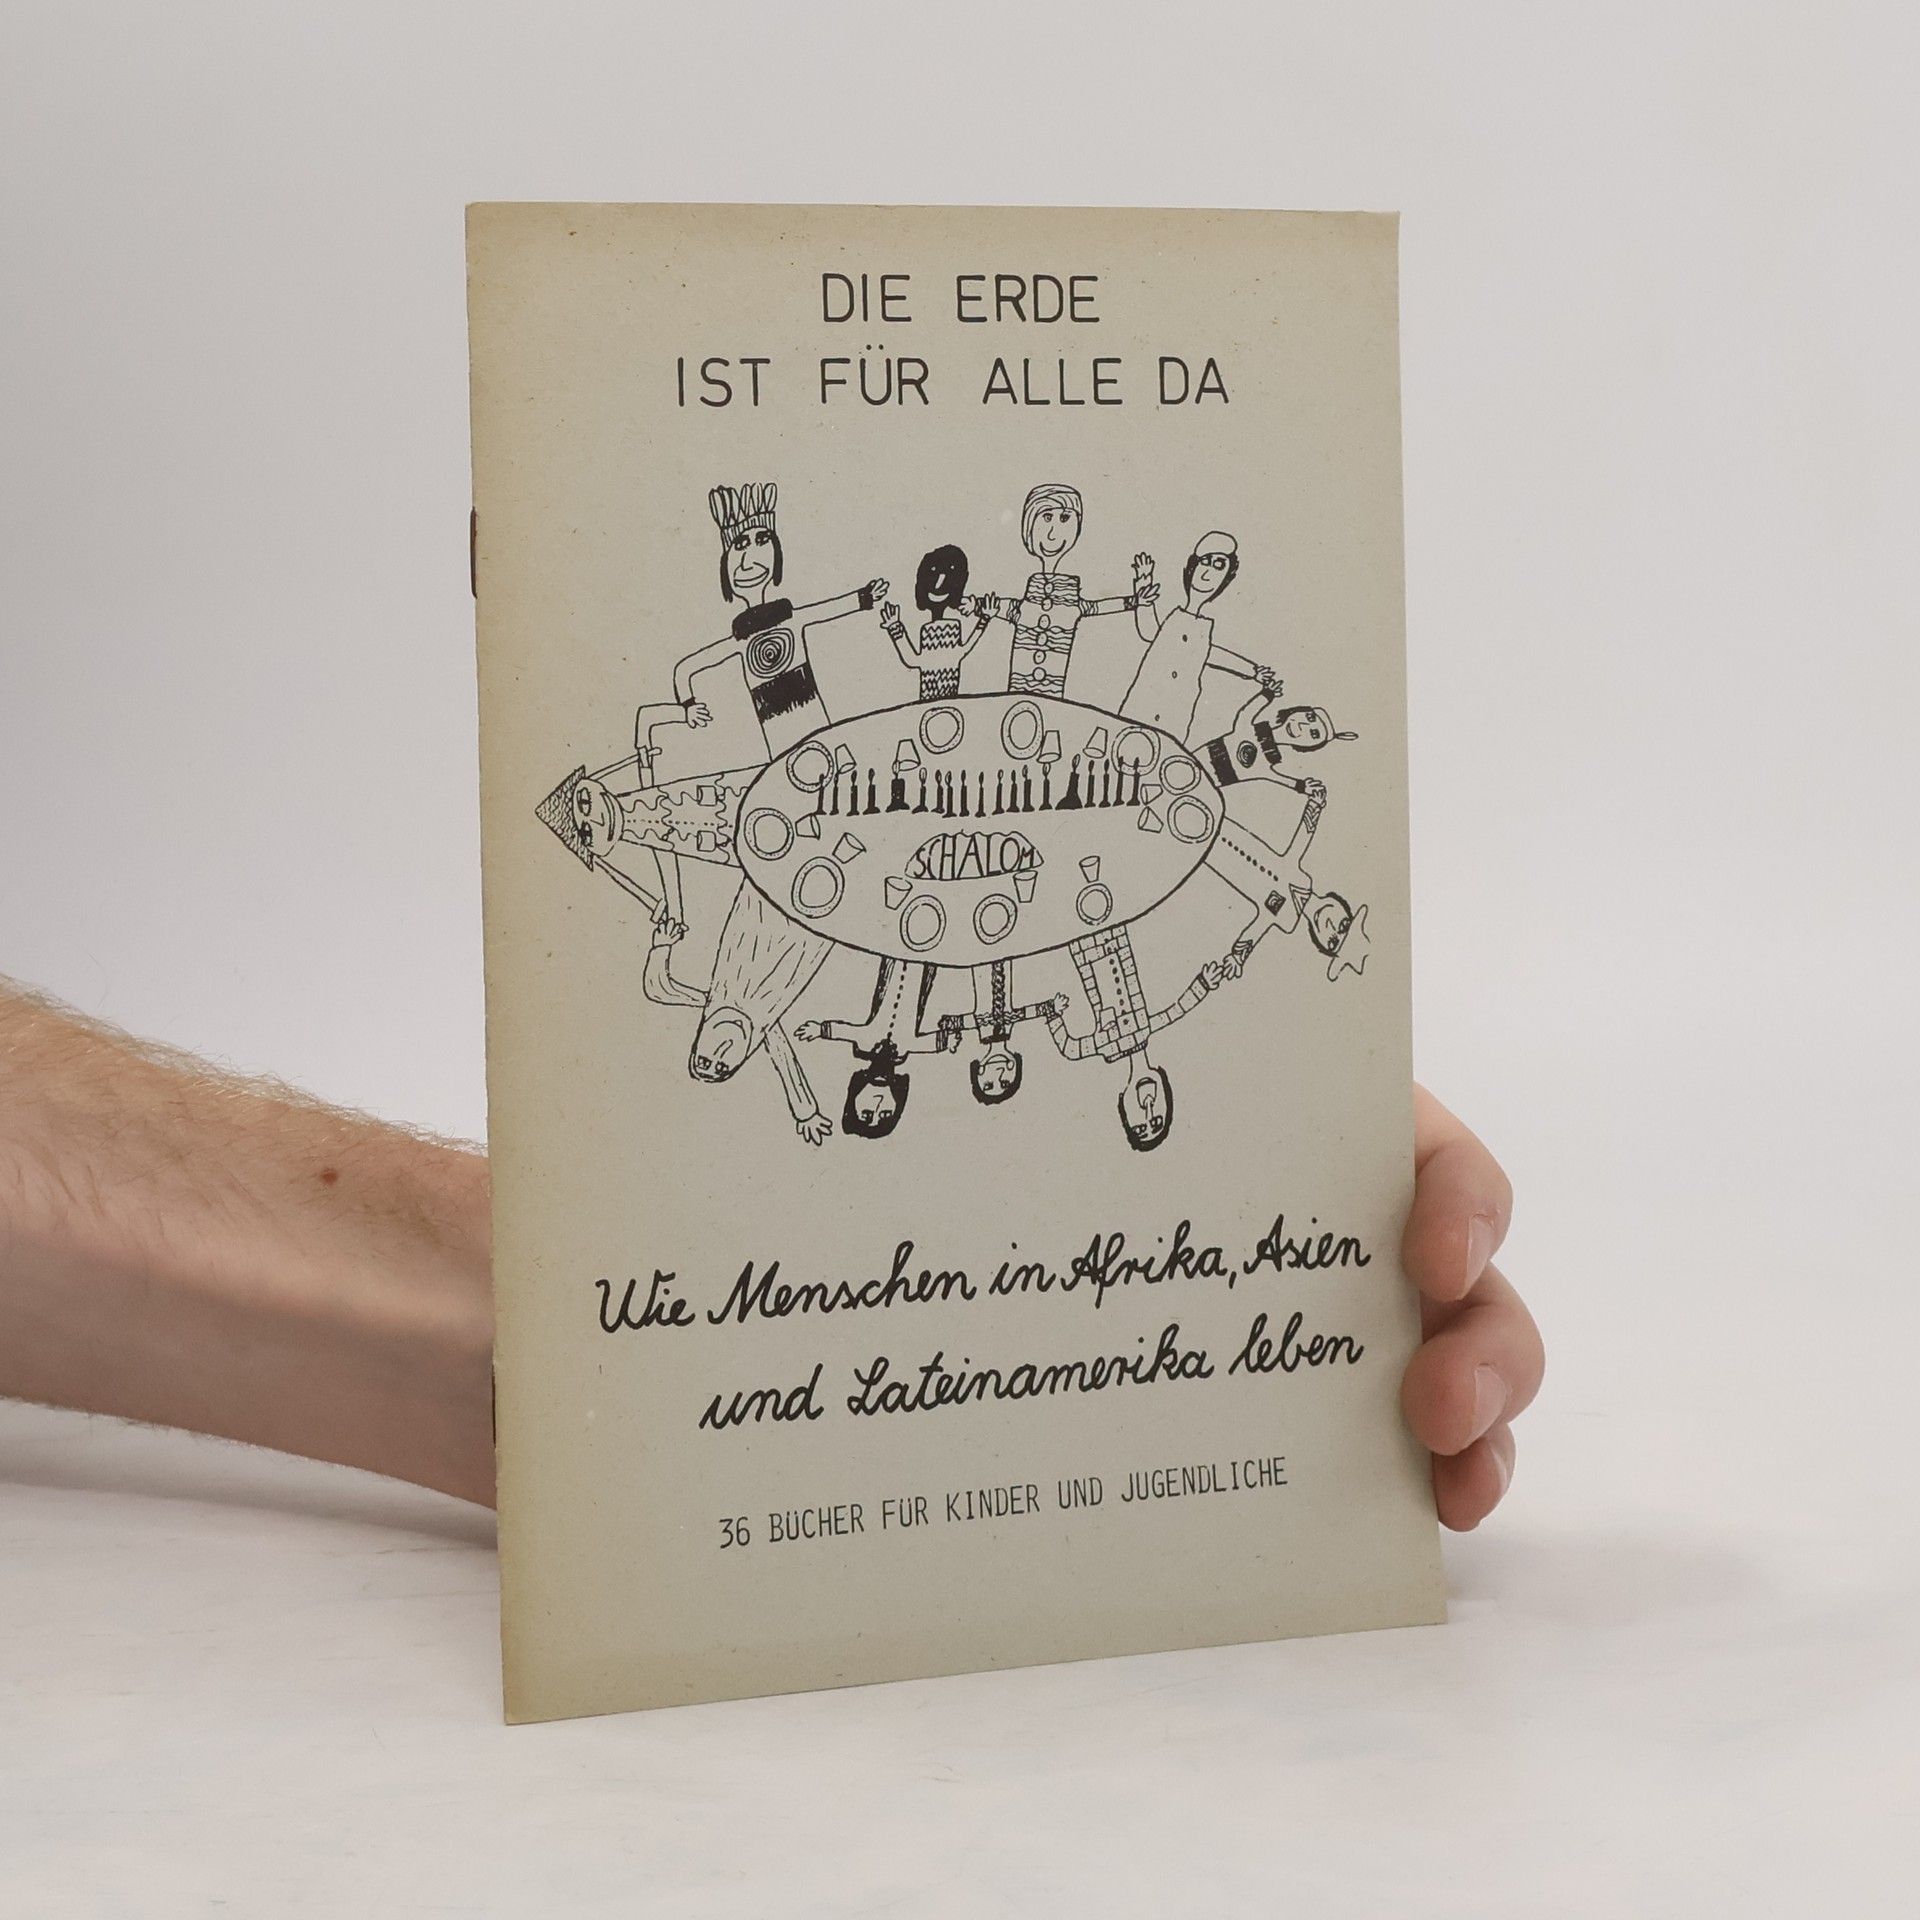 DIE ERDE
IST FÜR ALLE DA
SCHALOM
Wie Menschen in Afrika, Asien
und Lateinamerika leben
36 BÜCHER FÜR KINDER UND JUGENDLICHE